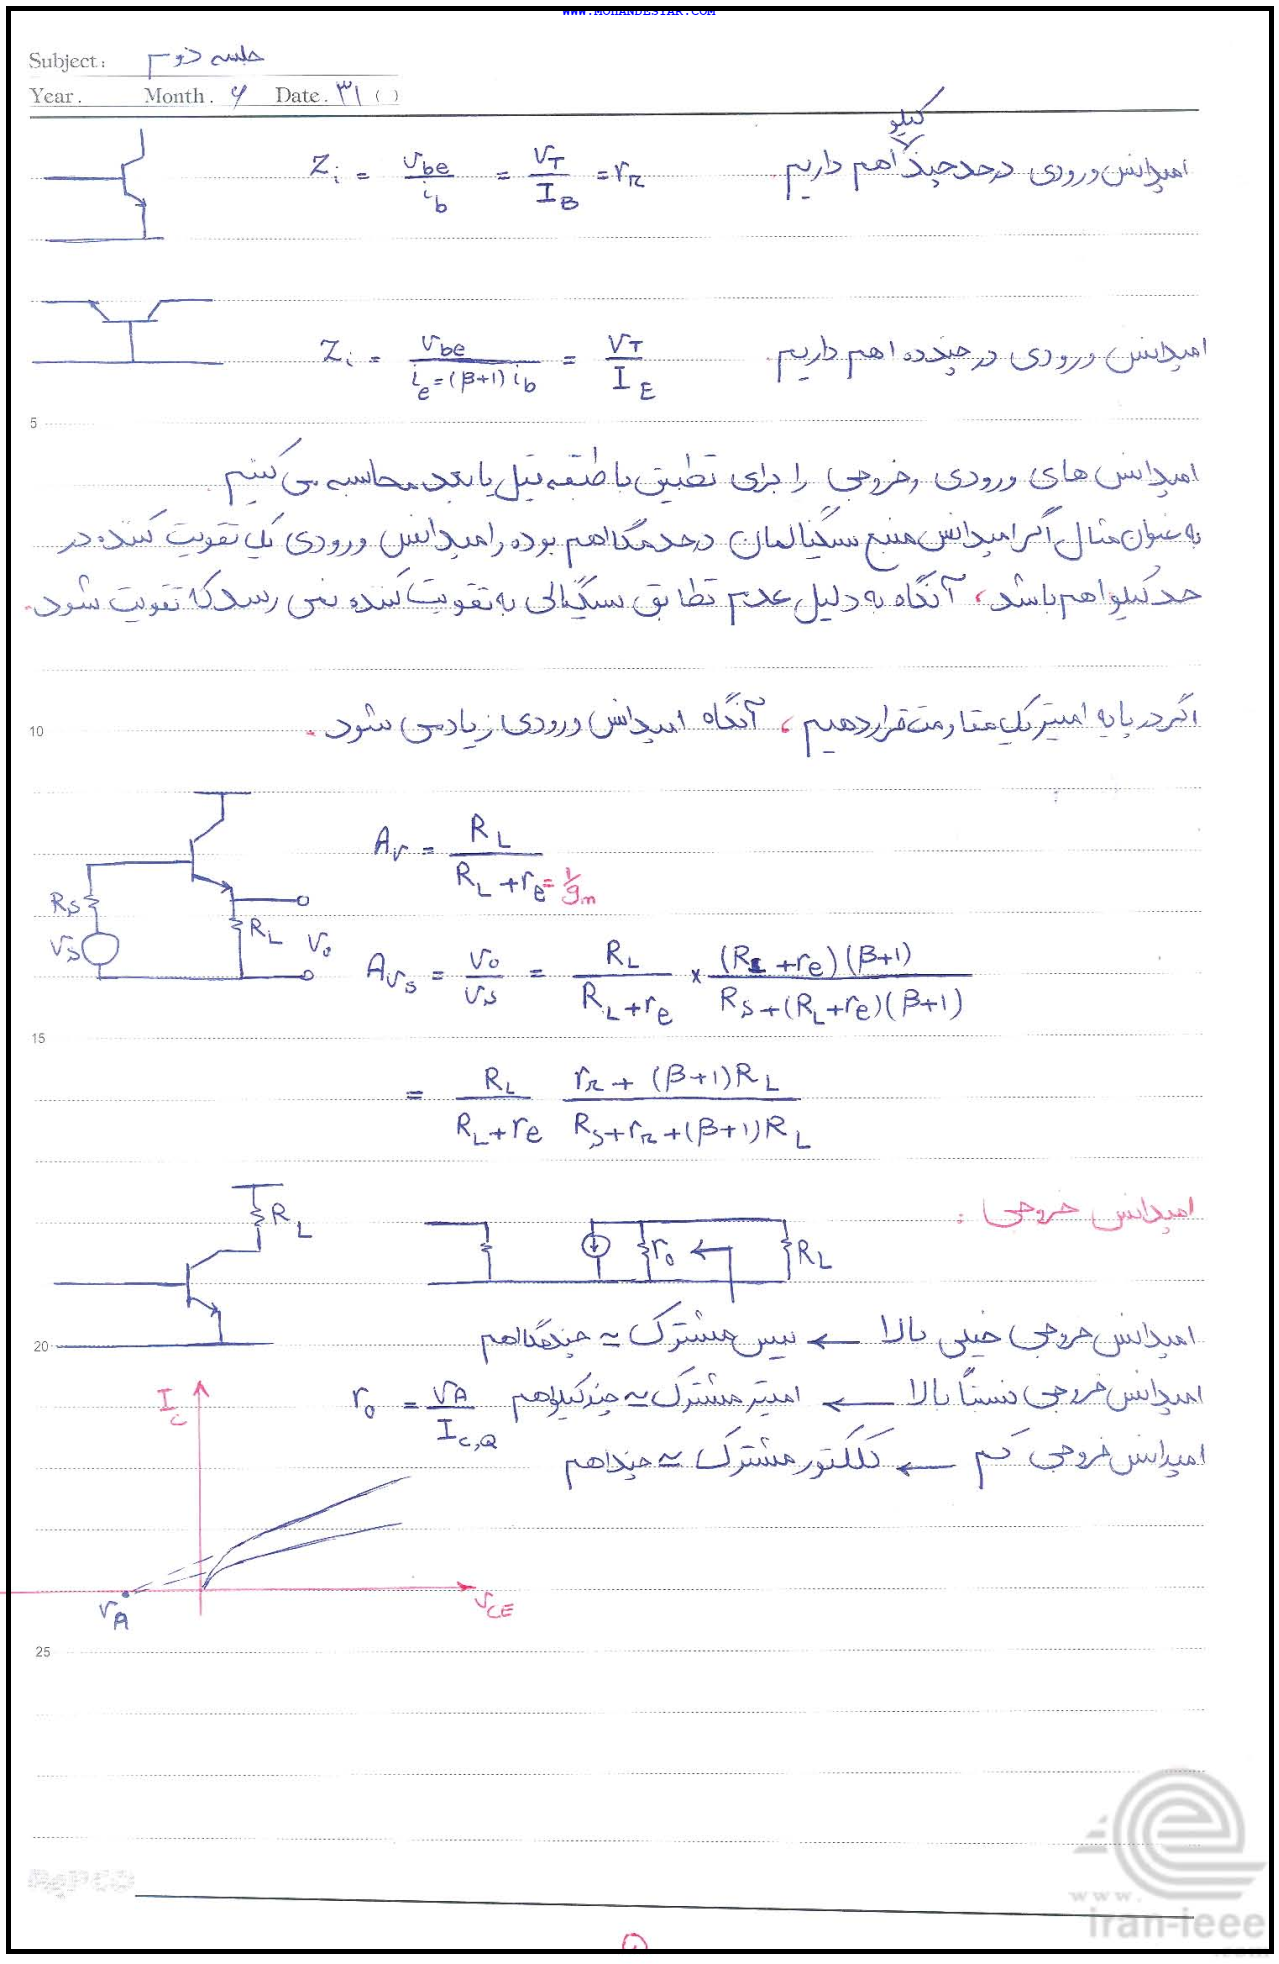 WWW.MOHANDESYAR.COM
Subject: جلسه دوم
Year. Month. ۶ Date. ۳۱ ( )
کیلو
امپدانس ورودی در حد چند اهم داریم. Zi = vbe / ib = VT / IB = rπ
امپدانس ورودی در چند ده اهم داریم. Zi = vbe / ie=(β+1) ib = VT / IE
5
امپدانس های ورودی و خروجی را برای تطبیق با طبقه قبل یا بعد محاسبه می کنیم.
به عنوان مثال اگر امپدانس منبع سیگنالمان در حد مگااهم بوده و امپدانس ورودی یک تقویت کننده در
حد کیلواهم باشد، آنگاه به دلیل عدم تطابق سیگنالی به تقویت کننده نمی رسد که تقویت شود.
10
اگر در پایه امیتر یک مقاومت قرار دهیم، آنگاه امپدانس ورودی زیاد می شود.
Av = RL / (RL + re) = 1/gm
RS
vS
RL
vo
Avs = vo / vs = RL / (RL + re) × (RL + re)(β+1) / (RS + (RL + re)(β+1))
15
= RL / (RL + re) (rπ + (β+1)RL) / (RS + rπ + (β+1)RL)
امپدانس خروجی:
RL
ro
RL
امپدانس خروجی خیلی بالا ← بیس مشترک ≃ چند مگااهم
20
امپدانس خروجی نسبتاً بالا ← امیتر مشترک ≃ چند کیلواهم ro = VA / IC,Q
امپدانس خروجی کم ← کلکتور مشترک ≃ چند اهم
Ic
VA
vCE
25
PAPCO
www.
iran-ieee
.com